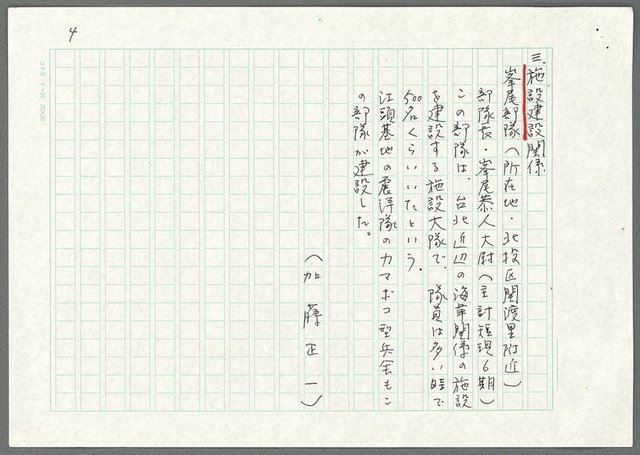 4
三.施設建設関係
峯尾部隊(所在地・北投区関渡里附近)
部隊長・峯尾恭人大尉(主計短現6期)
この部隊は、台北近辺の海軍関係の施設
を建設する施設大隊で、隊員は多い時で
500名くらいいたという。
江頭基地の震洋隊のカマボコ型兵舎もこ
の部隊が建設した。
(加藤正一)